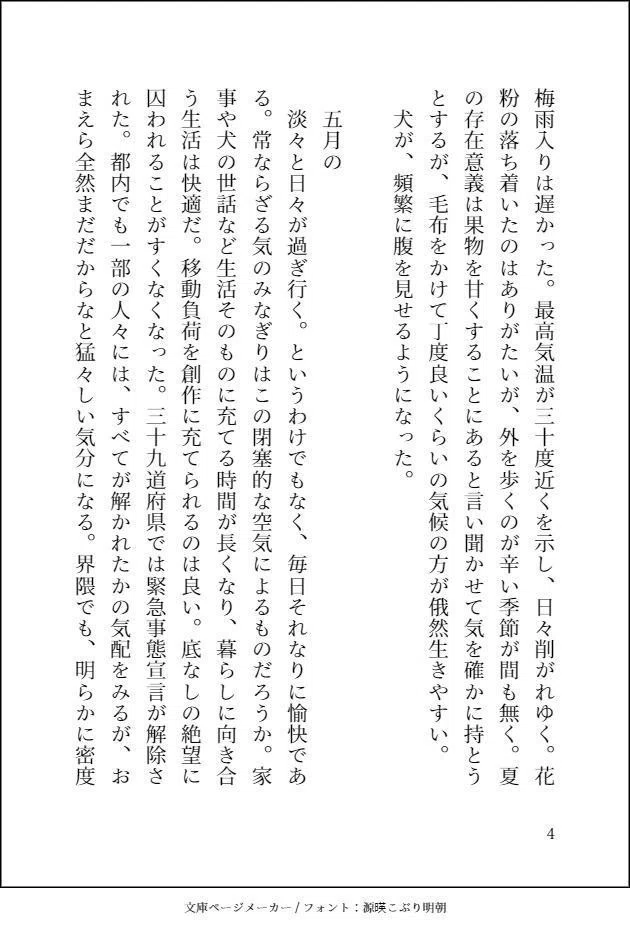 梅雨入りは遅かった。最高気温が三十度近くを示し、日々削がれゆく。花
粉の落ち着いたのはありがたいが、外を歩くのが辛い季節が間も無く。夏
の存在意義は果物を甘くすることにあると言い聞かせて気を確かに持とう
とするが、毛布をかけて丁度良いくらいの気候の方が俄然生きやすい。
犬が、頻繁に腹を見せるようになった。
五月の
淡々と日々が過ぎ行く。というわけでもなく、毎日それなりに愉快であ
る。常ならざる気のみなぎりはこの閉塞的な空気によるものだろうか。家
事や犬の世話など生活そのものに充てる時間が長くなり、暮らしに向き合
う生活は快適だ。移動負荷を創作に充てられるのは良い。底なしの絶望に
囚われることがすくなくなった。三十九道府県では緊急事態宣言が解除さ
れた。都内でも一部の人々には、すべてが解かれたかの気配をみるが、お
まえら全然まだだからなと猛々しい気分になる。界隈でも、明らかに密度
4
文庫ページメーカー / フォント：源暎こぶり明朝